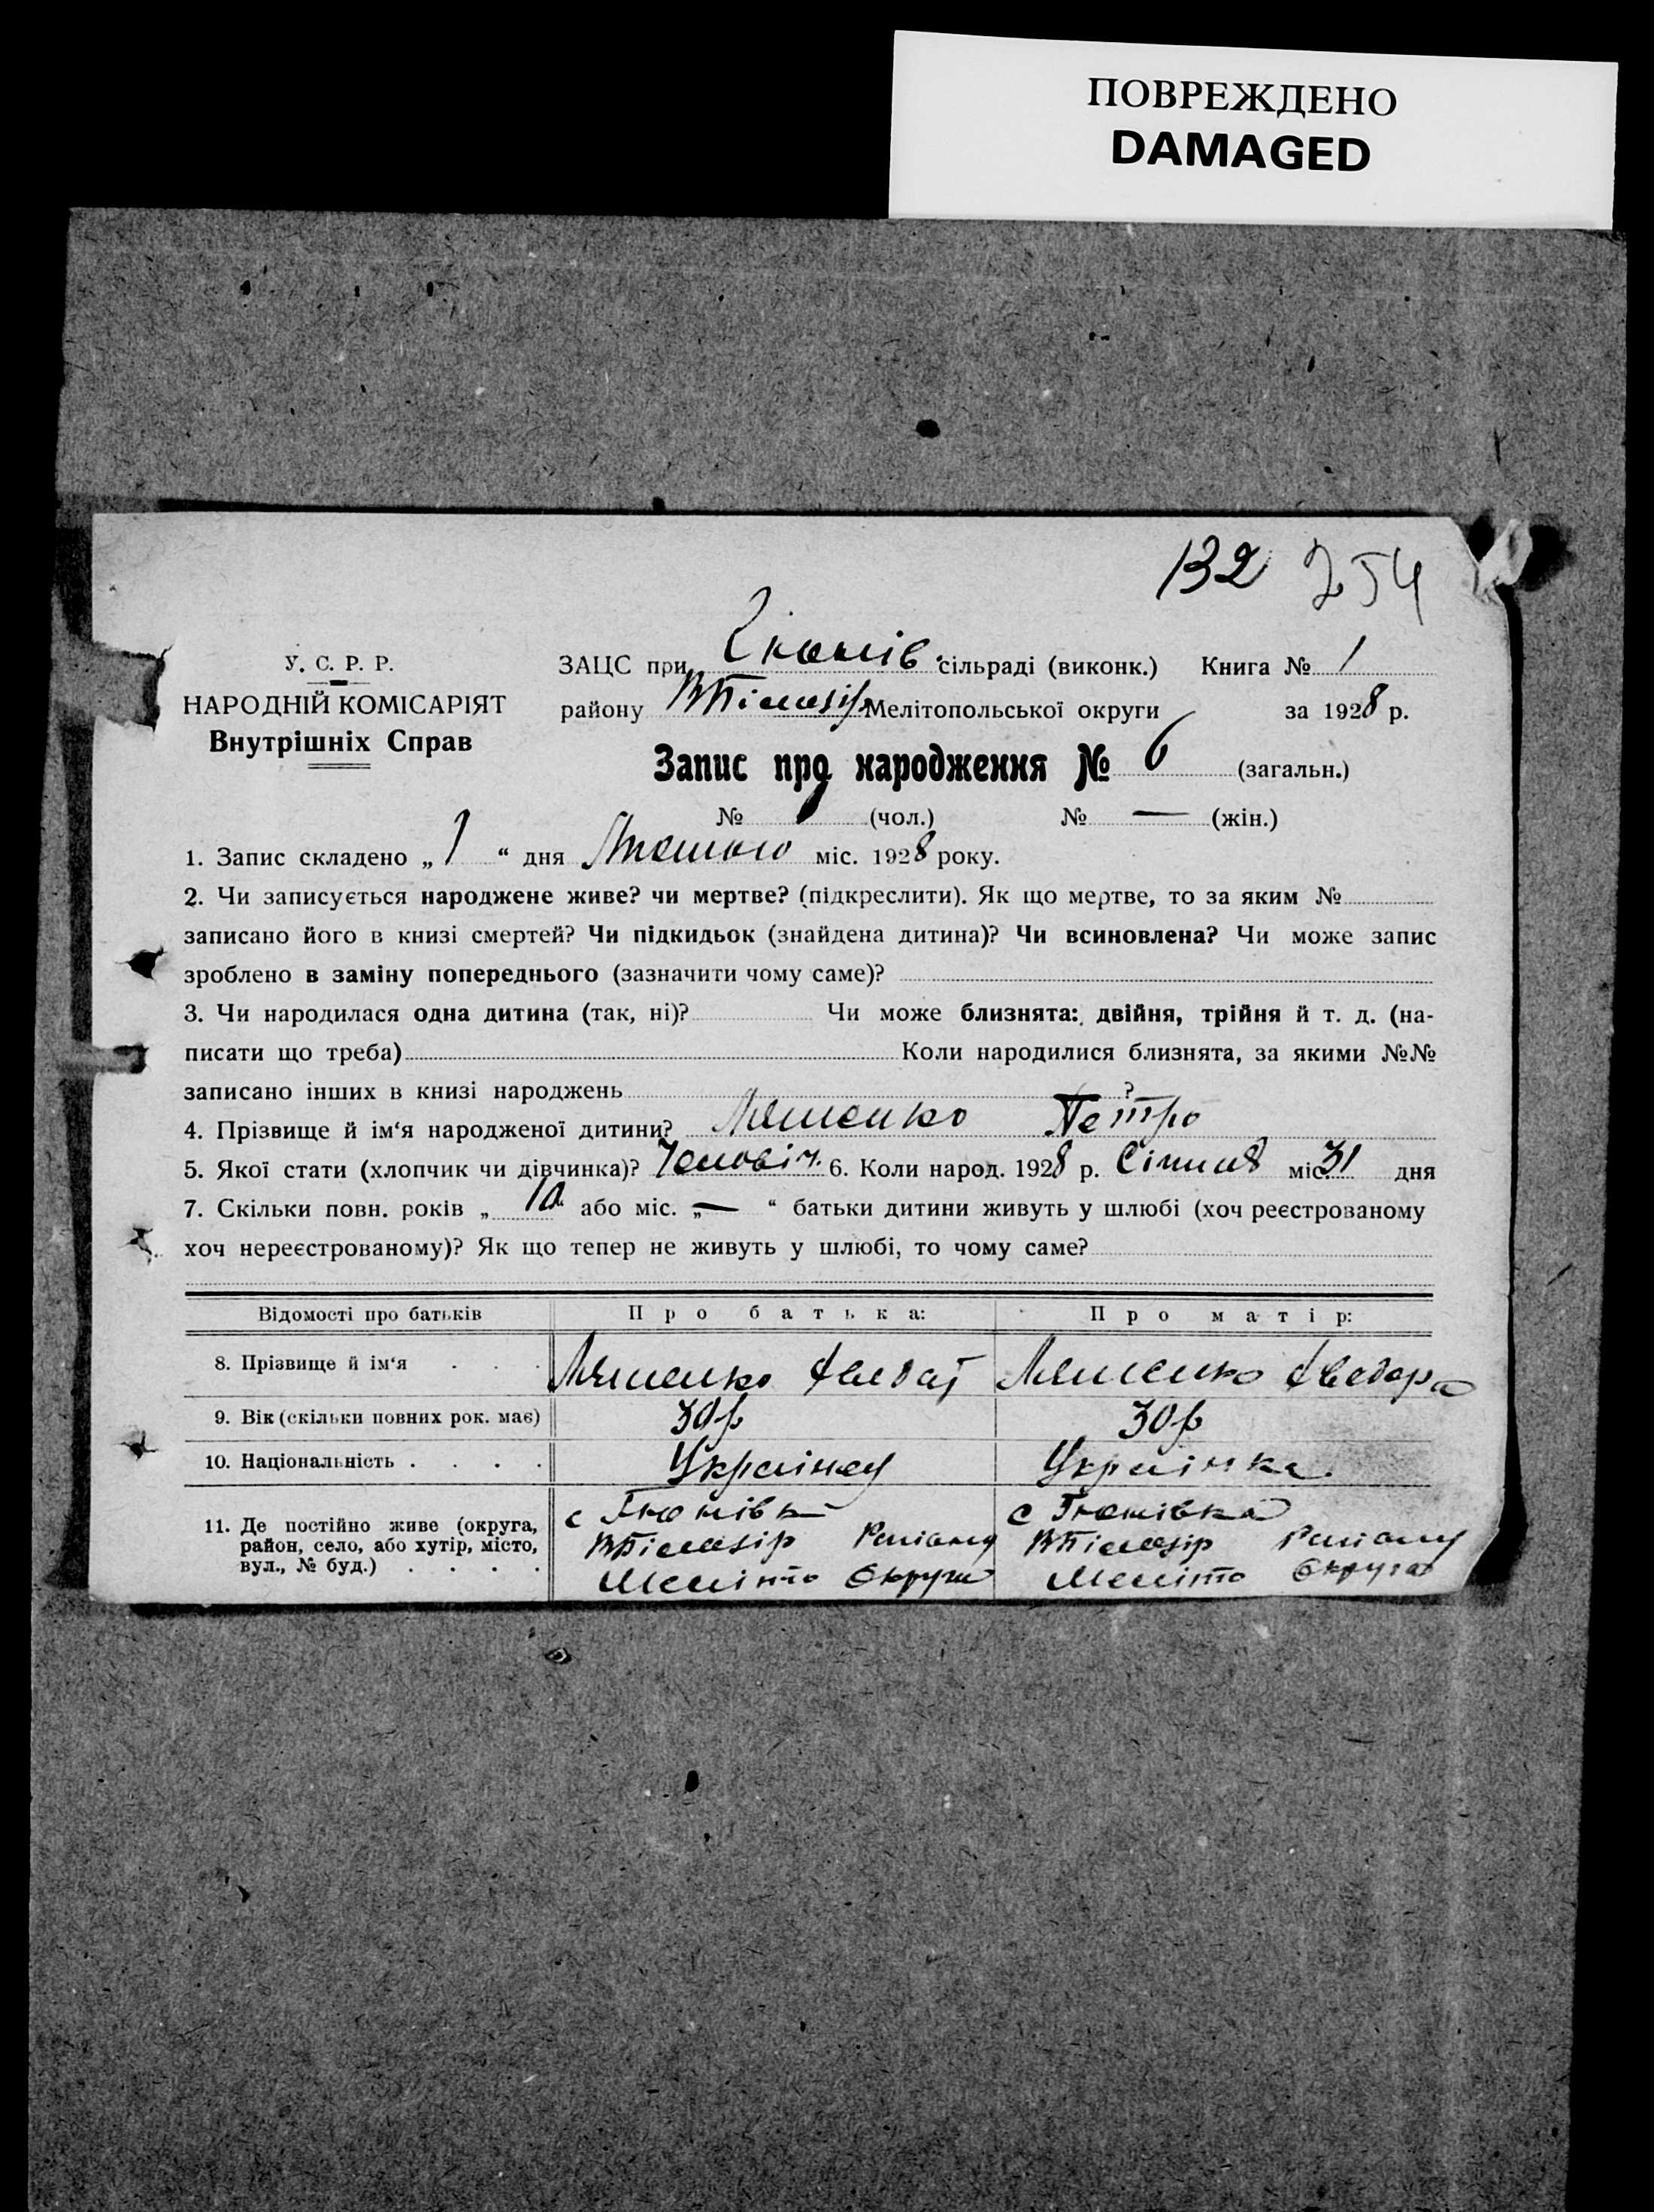 ПОВРЕЖДЕНО
DAMAGED
132 254
У. С. Р. Р.
НАРОДНІЙ КОМІСАРІЯТ
Внутрішніх Справ
ЗАЦС при сільраді (виконк.) Книга № 1
району Мелітопольської округи за 1928 р.
Запис про народження № 6 (загальн.)
№ (чол.) № — (жін.)
1. Запис складено „1“ дня Лютого міс. 1928 року.
2. Чи записується народжене живе? чи мертве? (підкреслити). Як що мертве, то за яким №
записано його в книзі смертей? Чи підкидьок (знайдена дитина)? Чи всиновлена? Чи може запис
зроблено в заміну попереднього (зазначити чому саме)?
3. Чи народилася одна дитина (так, ні)? Чи може близнята: двійня, трійня й т. д. (на-
писати що треба) Коли народилися близнята, за якими №№
записано інших в книзі народжень ?
4. Прізвище й ім‘я народженої дитини? Ляшенко Петро
5. Якої стати (хлопчик чи дівчинка)? Чоловіч. 6. Коли народ. 1928 р. Січня міс. 31 дня
7. Скільки повн. років „10“ або міс. „—“ батьки дитини живуть у шлюбі (хоч реєстрованому
хоч нереєстрованому)? Як що тепер не живуть у шлюбі, то чому саме?
Відомості про батьків Про батька: Про матір:
8. Прізвище й ім‘я . . . Ляшенко Ляшенко
9. Вік (скільки повних рок. має) 30р 30р
10. Національність . . . . Українец Українка
11. Де постійно живе (округа,
район, село, або хутір, місто,
вул., № буд.) . . . .
с с
ВБілозір Району ВБілозір Району
Меліто Округи Меліто Округа